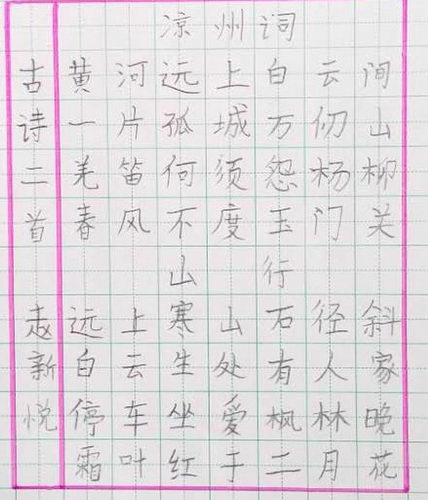 古诗二首
赵新悦
凉州词
黄河远上白云间
一片孤城万仞山
羌笛何须怨杨柳
春风不度玉门关
山行
远上寒山石径斜
白云生处有人家
停车坐爱枫林晚
霜叶红于二月花